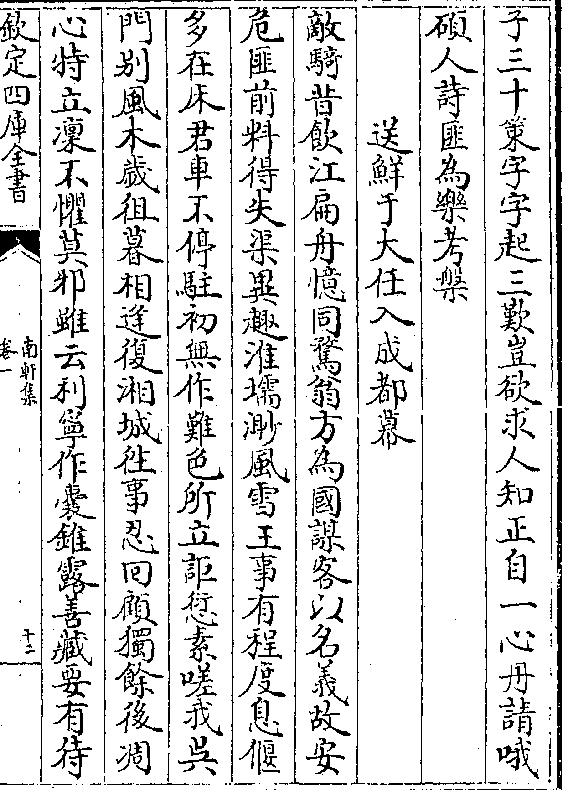 子三十策字字起三歎豈欲求人知正自一心丹請哦
碩人詩匪為樂考槃
送鮮于大任入成都幕
敵騎昔飲江扁舟憶同騖翁方為國謀客以名義故安
危匪前料得失渠異趣淮壖渺風雪王事有程度息偃
多在床君車不停駐初無作難色所立詎愆素嗟我吳
門别風木歲徂暮相逢復湘城往事忍回顧獨餘後凋
心特立凜不懼莫邪雖云利寧作囊錐露善藏要有待
欽定四庫全書
南軒集
卷一
十二